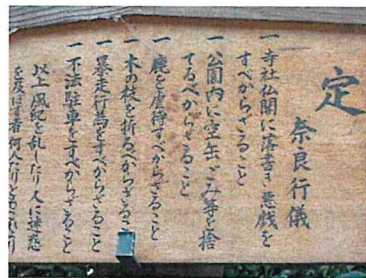 定
奈良行儀
一 寺社仏閣に落書き悪戯を
すべからざること
一 公園内に空缶ごみ等を捨
てるべからざること
一 鹿を虐待すべからざること
一 木の枝を折るべからざること
一 暴走行為をすべからざること
一 不法駐車をすべからざること
以上風紀を乱したり人に迷惑
を及ぼす者何人たりとも